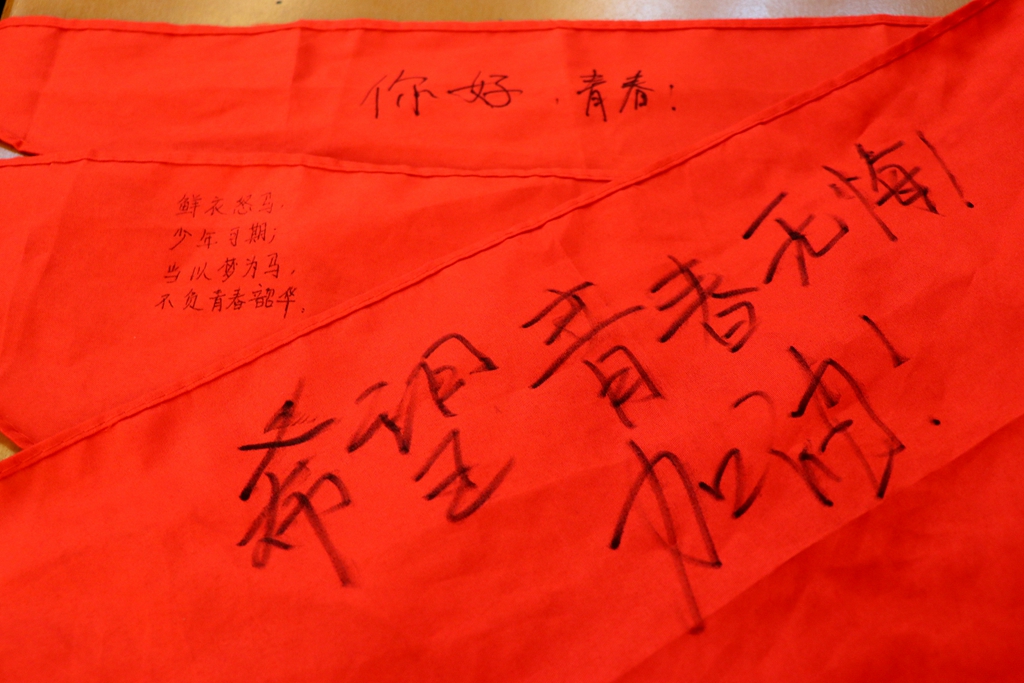 你好，青春！
鲜衣怒马，
少年可期；
当以梦为马，
不负青春韶华。
希望青春无悔！
加油！